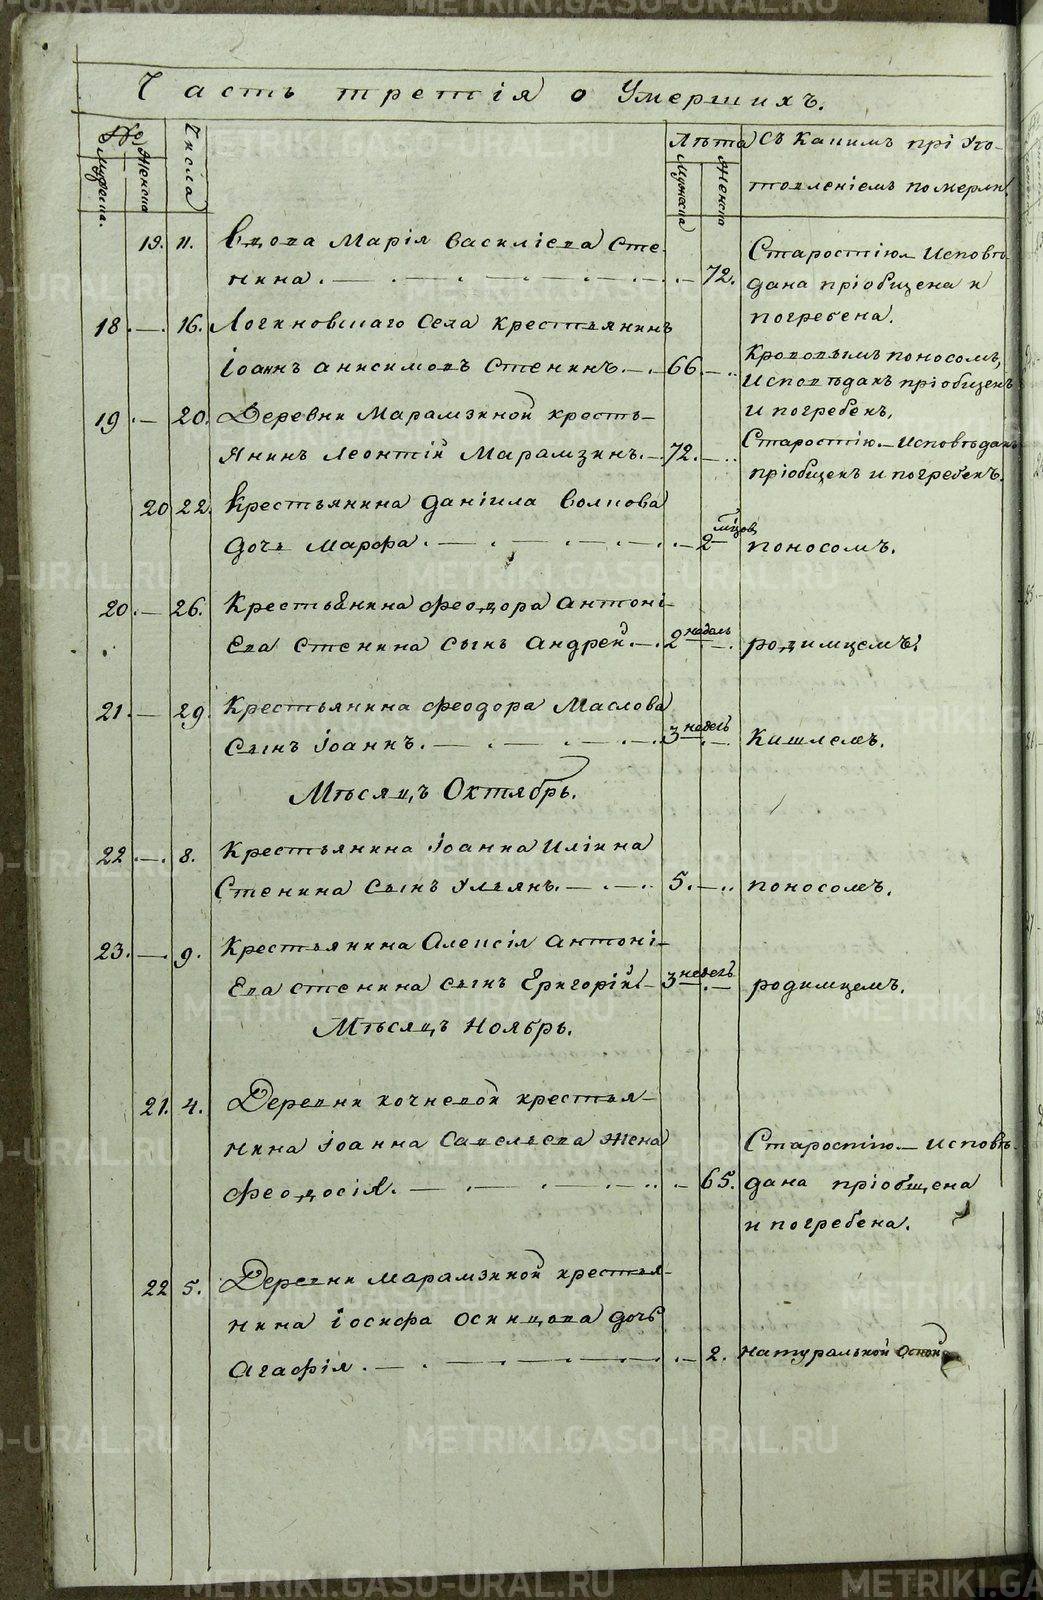 Часть третія о Умершихъ.
№
Мужеска. Женска
Числа
Лѣта
Мужеска Женска
Съ Какимъ прiуго-
товленіемъ померли.
19. 11. Вдова Марія Василіева Сте-
нина. 72. Старостію Исповѣ-
дана пріобщена и
погребена.
18. 16. Логиновшаго Села крестьянинъ
Іоаннъ Анисимовъ Стенинъ. 66. Крововымъ поносомъ,
Исповѣданъ пріобщенъ
и погребенъ.
19. 20. Деревни Марамзиной кресть-
янинъ Леонтій Марамзинъ. 72. Старостію. Исповѣданъ
пріобщенъ и погребенъ.
20 22. Крестьянина Даніила Волкова
дочь Марфа. 2 мѣсяц. поносомъ.
20. 26. Крестьянина Феодора Антоні-
ева Стенина сынъ Андрей. 2 недѣль родимцемъ.
21. 29. Крестьянина Феодора Маслова
сынъ Іоаннъ. 3 недель Кашлемъ.
Мѣсяцъ Октябрь.
22. 8. Крестьянина Іоанна Иліина
Стенина сынъ Ульянъ. 5. поносомъ.
23. 9. Крестьянина Алексія Антоні-
ева Стенина сынъ Григорій 3 недель родимцемъ.
Мѣсяцъ Ноябрь.
21. 4. Деревни Кочневой крестья-
нина Іоанна Савельева жена
Феодосія. 65. Старостію. Исповѣ-
дана пріобщена
и погребена.
22 5. Деревни Марамзиной крестья-
нина Іосифа Осинцова дочь
Агафія. 2. Натуральной Оспой
METRIKI.GASO-URAL.RU